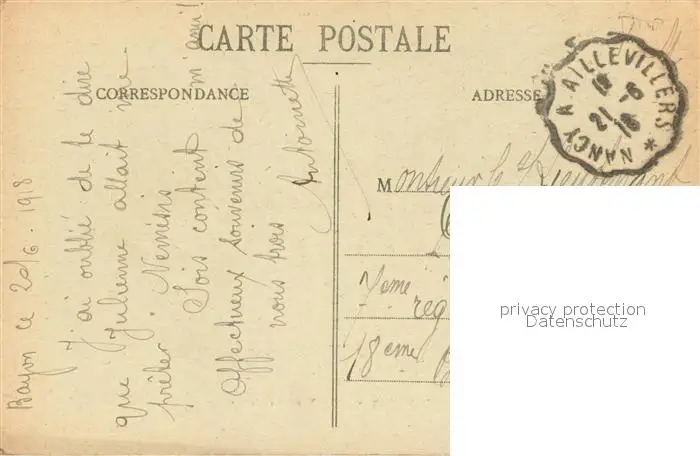 CARTE POSTALE
CORRESPONDANCE
ADRESSE
NANCY A AILLEVILLERS *
21 - 6
18
Bayon ce 20/6. 1918
J'ai oublié de te dire
que Julienne allait me
prêter. Nemesis
Sois content m'ami!
Affectueux souvenirs de
nous trois Antoinette
Monsieur le Lieutenant
7eme rég
18eme
privacy protection
Datenschutz